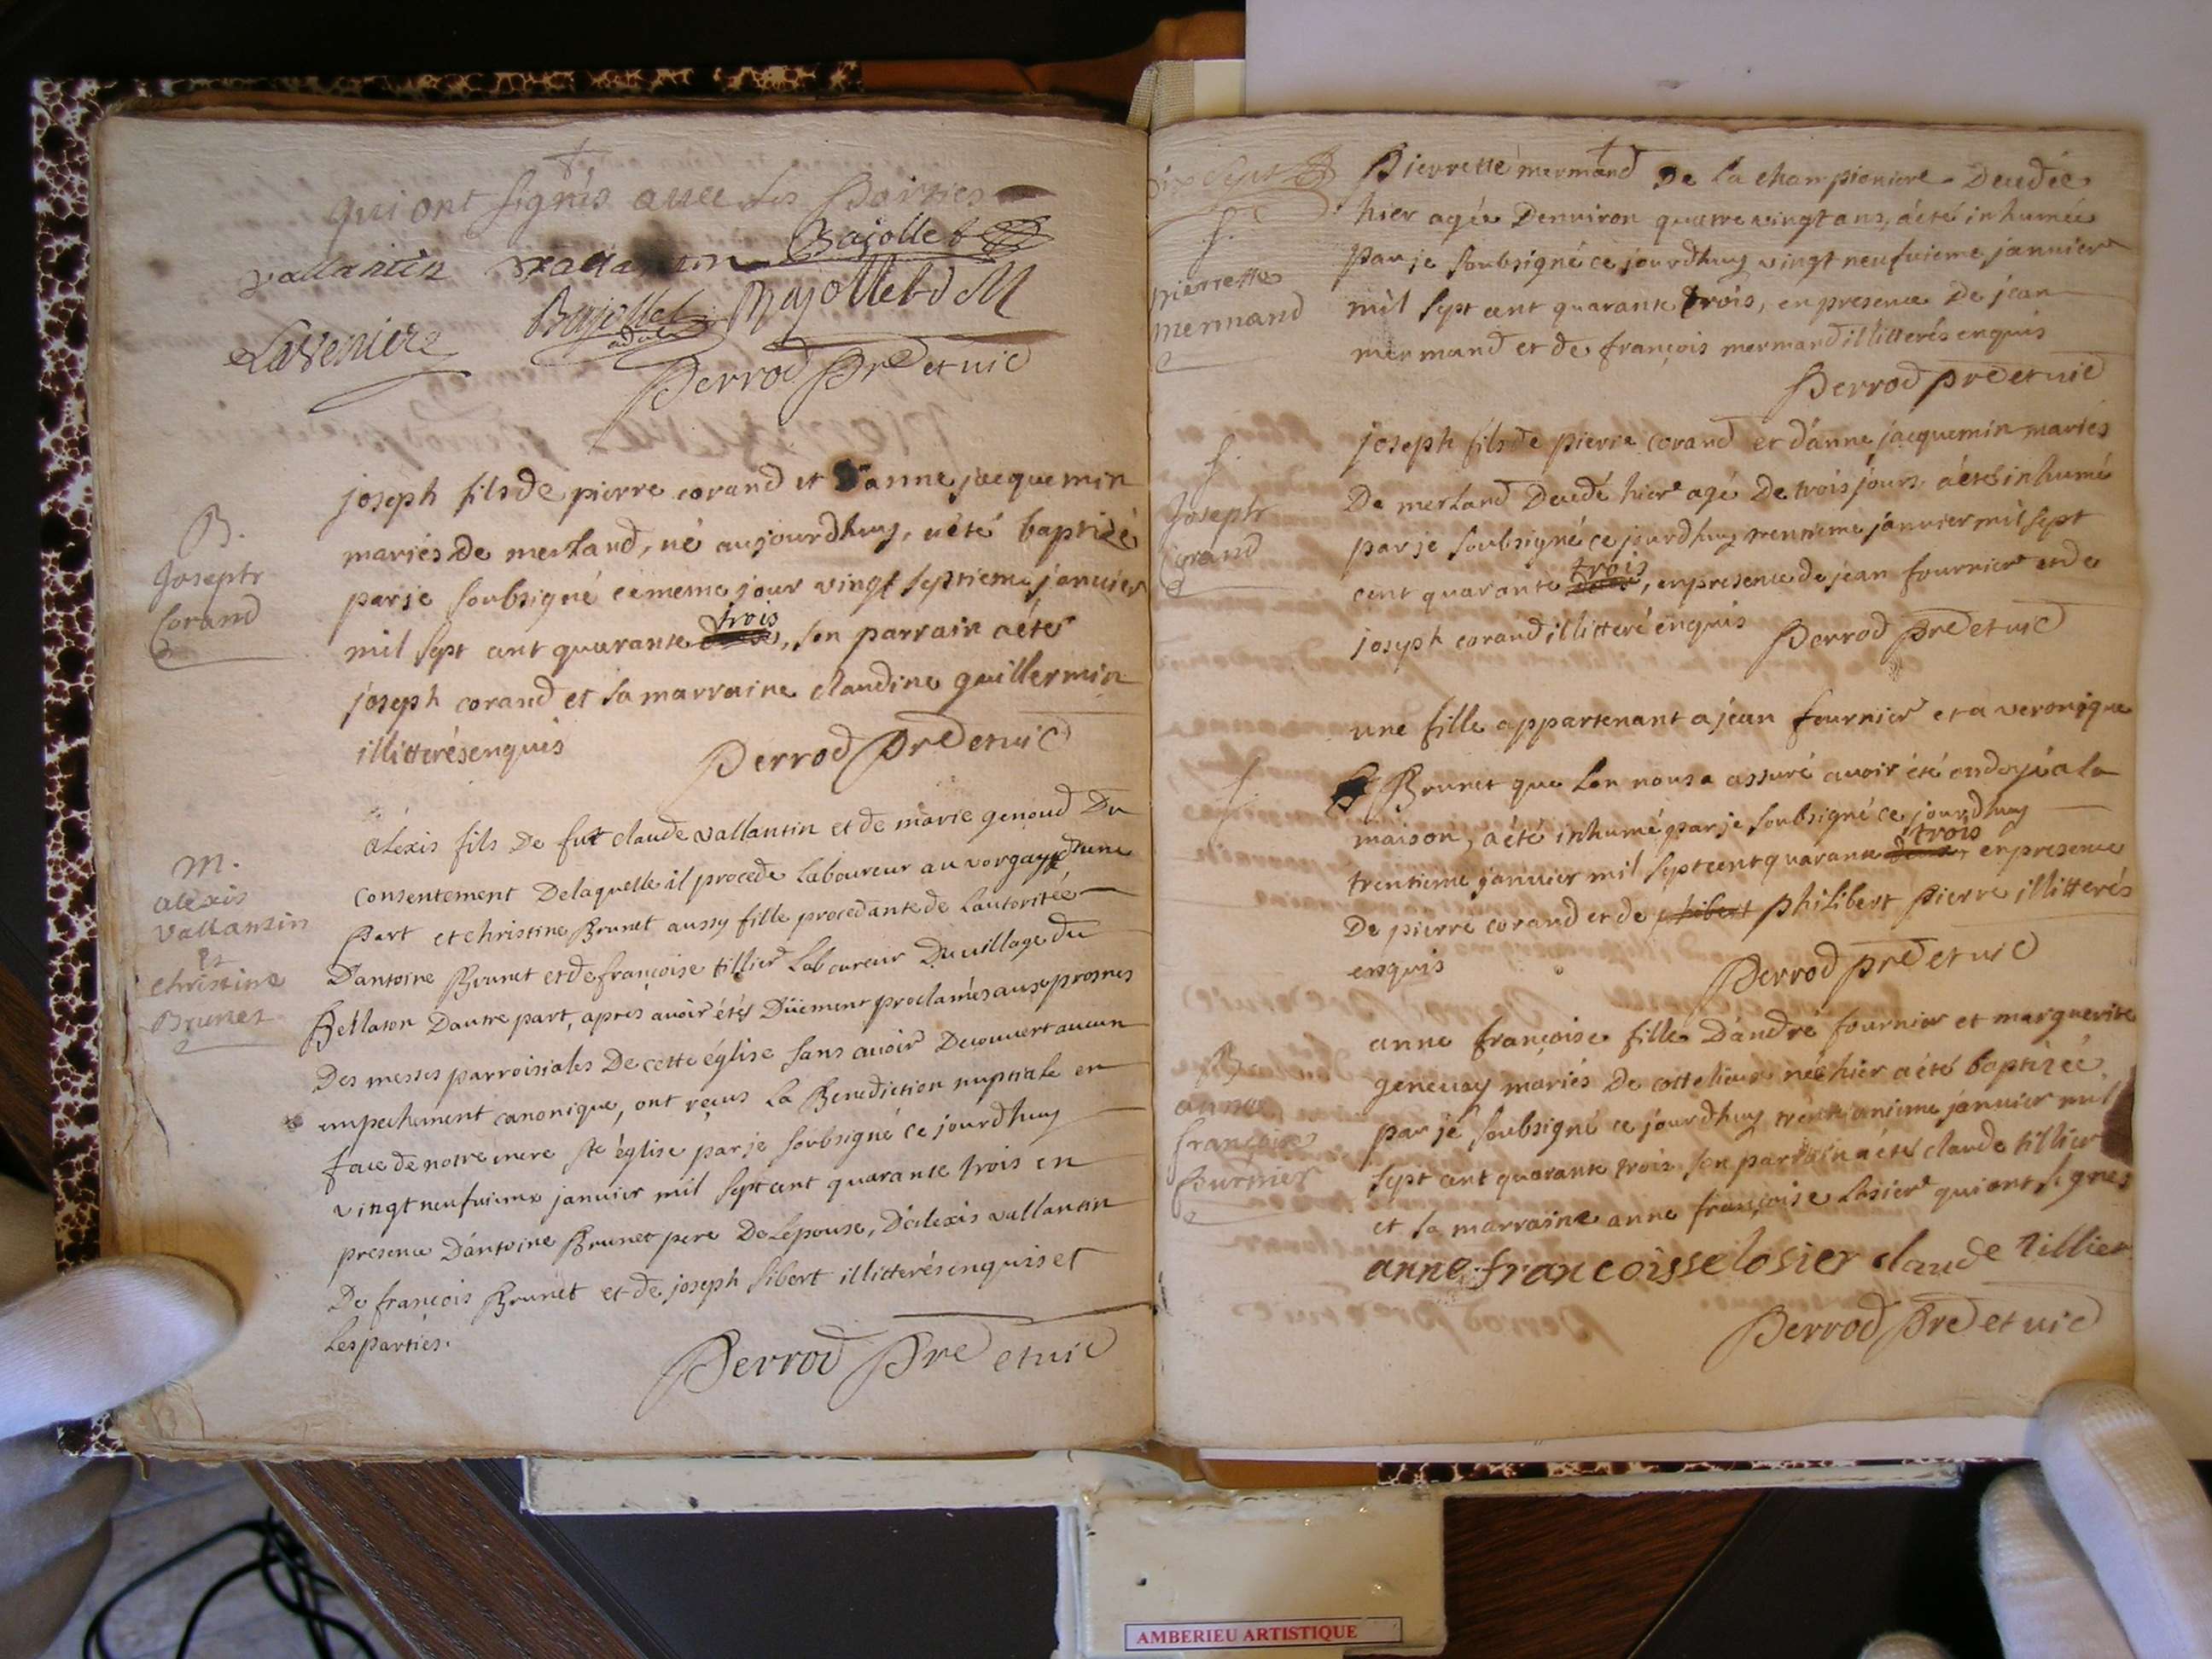 qui ont signés avec les Parties
vallantin vallantin Bajollet
Bajollet Bajollet d M
Laverniere
Perrod Pre et vic
B.
Joseph
Corand
joseph fils de pierre corand et D'anne jacquemin
mariés De merland, né aujourdhuy, a été baptizé
par je soubsigné ce meme jour vingt septieme janvier
mil sept cent quarante trois, son parrain a été
joseph corand et sa marraine claudine guillermin
illitterés enquis Perrod Pre et vic
M.
alexis
vallantin
et
christine
Brunet
alexis fils De fut claude vallantin et de marie genoud Du
consentement Delaquelle il procede Laboureur au vorgay d'une
part et christine Brunet aussy fille procedante de Lautoritée
D'antoine Brunet et de françoise tillier Laboureur Du village du
Bellaton Dautre part, aprés avoir étés Düement proclamés aux prosnes
Des messes parroisiales De cette église sans avoir Decouvert aucun
empechement canonique, ont reçus La Benediction nuptiale en
face de notre mere ste église par je soubsigné ce jourdhuy
vingt neufvieme janvier mil sept cent quarante trois en
presence D'antoine Brunet pere De Lepouse, D'alexis vallantin
De françois Brunet et de joseph sibert illitterés enquis et
Les parties.
Perrod Pre et vic
dix sept
f.
pierrette
mermand
Pierrette mermand De la championiere Decedée
hier agée Denviron quatre vingt ans, a été inhumée
par je soubsigné ce jourdhuy vingt neufvieme janvier
mil sept cent quarante trois, en presence De jean
mermand et de françois mermand illitterés enquis
Perrod pre et vic
f.
Joseph
Corand
joseph fils de pierre corand et d'anne jacquemin mariés
De merland Decedé hier agé De trois jours a été inhumé
par je soubsigné ce jourdhuy trentieme janvier mil sept
cent quarante trois, en presence de jean fournier et de
joseph corand illitteré enquis Perrod Pre et vic
f.
une fille appartenant a jean fournier et a veronique
Brunet que Lon nous a assuré avoir été ondoyé a la
maison, a été inhumé par je soubsigné ce jourdhuy
trentieme janvier mil sept cent quarante trois en presence
De pierre corand et de philibert Pierre illitterés
enquis
Perrod pre et vic
B
anne
françoise
fournier
anne françoise fille D'andré fournier et marguerite
genevay mariés De cotte lieur née hier a été baptizée
par je soubsigné ce jourdhuy trente unieme janvier mil
sept cent quarante trois son parrain a été claude tillier
et sa marraine anne françoise Losier qui ont signes
anne francoisse losier claude tillier
Perrod Pre et vic
AMBERIEU ARTISTIQUE